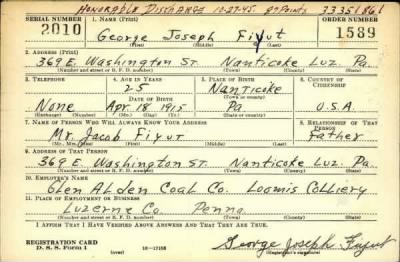 HONORABLE DISCHARGE 10-27-45. 87 Points 33351861
SERIAL NUMBER 1. NAME (Print) ORDER NUMBER
2010 George Joseph Fiyut 1589
(First) (Middle) (Last)
2. ADDRESS (Print)
369 E. Washington ST. Nanticoke Luz. Pa.
(Number and street or R. F. D. number) (Town) (County) (State)
3. TELEPHONE 4. AGE IN YEARS 5. PLACE OF BIRTH 6. COUNTRY OF CITIZENSHIP
25 Nanticoke
DATE OF BIRTH (Town or county)
None Apr 18 1915 Pa U.S.A.
(Exchange) (Number) (Mo.) (Day) (Yr.) (State or country)
7. NAME OF PERSON WHO WILL ALWAYS KNOW YOUR ADDRESS 8. RELATIONSHIP OF THAT PERSON
Mr. Jacob Fiyut Father
(Mr., Mrs., Miss) (First) (Middle) (Last)
9. ADDRESS OF THAT PERSON
369 E. Washington ST. Nanticoke Luz. Pa.
(Number and street or R. F. D. number) (Town) (County) (State)
10. EMPLOYER'S NAME
Glen Alden Coal Co. Loomis Colliery
11. PLACE OF EMPLOYMENT OR BUSINESS
Luzerne Co. Penna
(Number and street or R. F. D. number) (Town) (County) (State)
I AFFIRM THAT I HAVE VERIFIED ABOVE ANSWERS AND THAT THEY ARE TRUE.
REGISTRATION CARD
D. S. S. Form 1 (over) 16—17105
George Joseph Fiyut
(Registrant's signature)